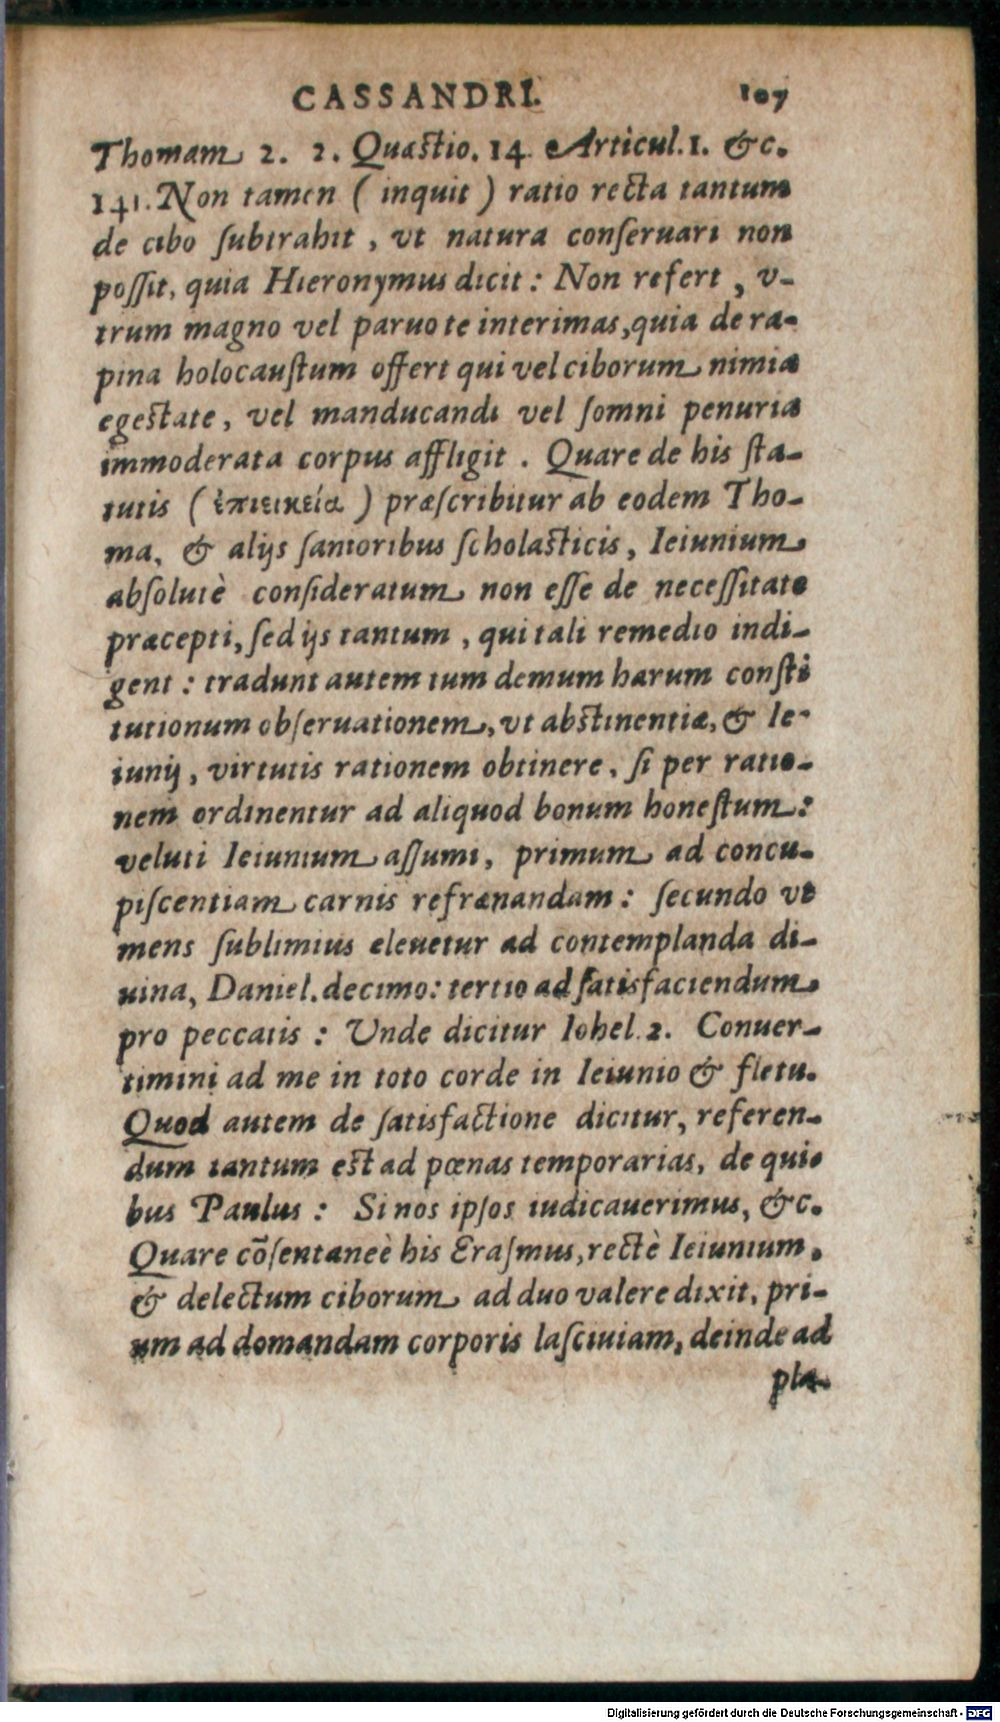 CASSANDRI. 107
Thomam 2. 2. Quæstio. 14. Articul. 1. &c.
141. Non tamen ( inquit ) ratio recta tantum
de cibo ſubtrahit , vt natura conſeruari non
poſſit, quia Hieronymus dicit : Non refert , v-
trum magno vel paruo te interimas, quia de ra-
pina holocauſtum offert qui vel ciborum nimia
egeſtate , vel manducandi vel ſomni penuria
immoderata corpus affligit . Quare de his ſta-
tutis ( ἐπιεικεία ) præſcribitur ab eodem Tho-
ma, & alijs ſanioribus ſcholaſticis, Ieiunium
abſolutè conſideratum non eſſe de neceſſitate
præcepti, ſed ijs tantum , qui tali remedio indi-
gent : tradunt autem tum demum harum conſti
tutionum obſeruationem, vt abſtinentiæ, & Ie-
iunij, virtutis rationem obtinere, ſi per ratio-
nem ordinentur ad aliquod bonum honeſtum:
veluti Ieiunium aſſumi, primum ad concu-
piſcentiam carnis refrænandam : ſecundo vt
mens ſublimius eleuetur ad contemplanda di-
uina, Daniel. decimo: tertio ad ſatisfaciendum
pro peccatis : Unde dicitur Iohel. 2. Conuer-
timini ad me in toto corde in Ieiunio & fletu.
Quod autem de ſatisfactione dicitur, referen-
dum tantum eſt ad pœnas temporarias, de qui-
bus Paulus : Si nos ipſos iudicauerimus, &c.
Quare cõſentaneè his Eraſmus, rectè Ieiunium,
& delectum ciborum ad duo valere dixit, pri-
um ad domandam corporis laſciuiam, deinde ad
pla-
Digitalisierung gefördert durch die Deutsche Forschungsgemeinschaft - DFG